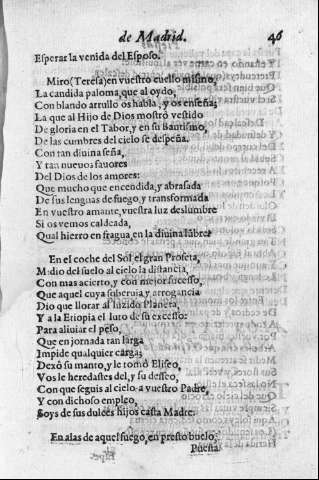 de Madrid. 46
Esperar la venida del Esposo.
Miro (Teresa) en vuestro cuello mismo,
La candida paloma, que al oydo,
Con blando arrullo os habla, y os enseña;
La que al Hijo de Dios mostrò vestido
De gloria en el Tabor, y en su Bautismo,
De las cumbres del cielo se despeña.
Con tan diuina seña,
Y tan nueuos fauores
Del Dios de los amores:
Que mucho que encendida, y abrasada
De sus lenguas de fuego, y transformada
En vuestro amante, vuestra luz deslumbre
Si os vemos caldeada,
Qual hierro en fragua, en la diuina lũbre?
En el coche del Sol el gran Profeta,
Midio del suelo al cielo la distancia,
Con mas acierto, y con mejor sucesso,
Que aquel cuya soberuia, y arrogancia
Dio que llorar al luzido Planeta,
Y a la Etiopia el luto de su excesso:
Para aliuiar el peso,
Que en jornada tan larga
Impide qualquier carga;
Dexò su manto, y le tomò Eliseo,
Vos le heredastes del, y su desseo,
Con que seguis al cielo a vuestro Padre,
Y con dichoso empleo,
Soys de sus dulces hijos casta Madre.
En alas de aquel fuego, en presto buelo,
Puesta